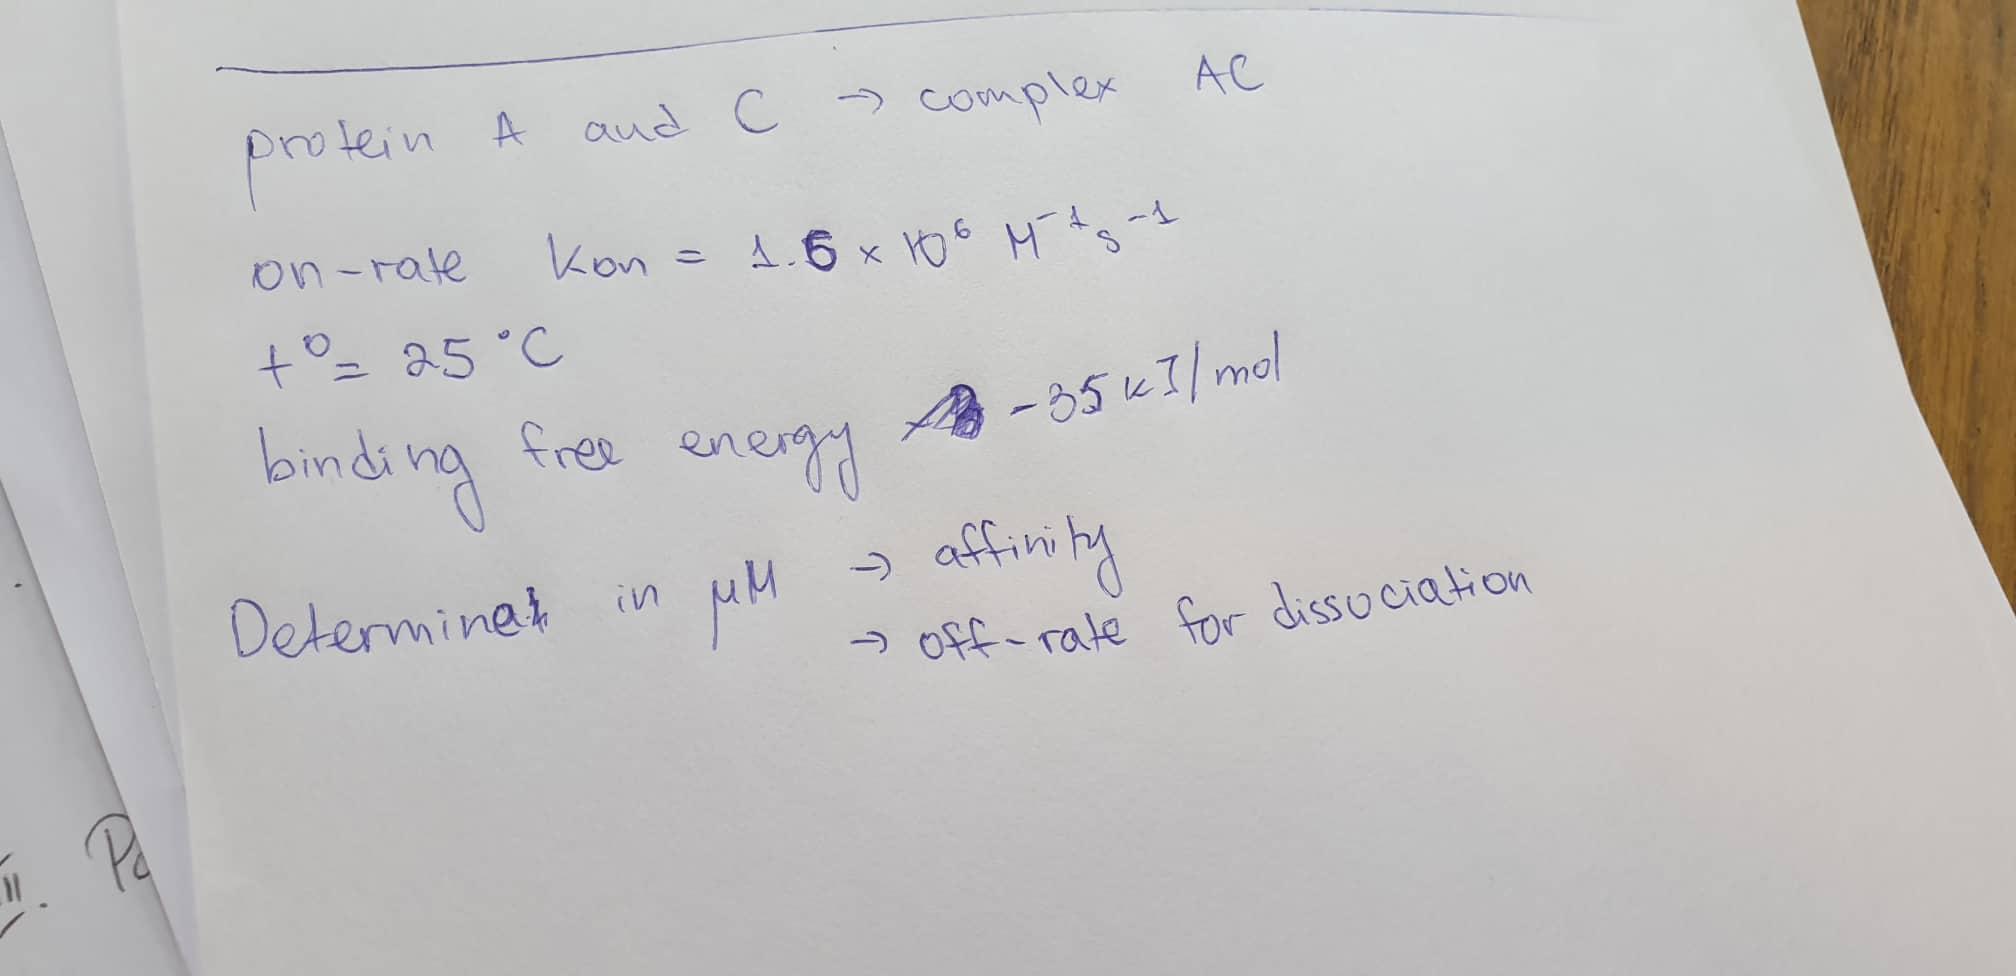 protein A and C → complex AC
on-rate kon = 1.6 × 10⁶ M⁻¹s⁻¹
t° = 25 °C
binding free energy -35 kJ/mol
Determine in μM → affinity
→ off-rate for dissociation
II. Po